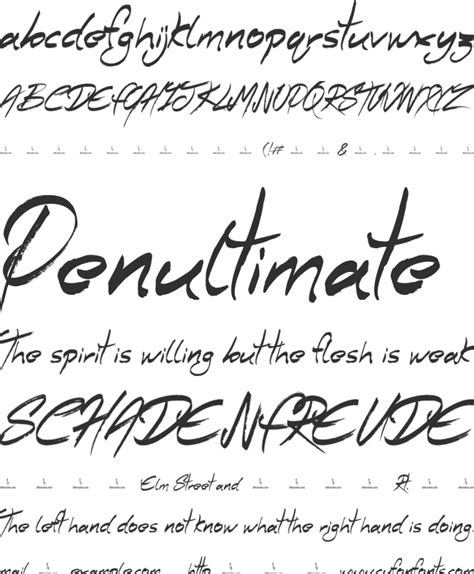 abcdefghijklmnopqrstuvwxyz
ABCDEFGHIJKLMNOPQRSTUVWXYZ
(!# & .
Penultimate
The spirit is willing but the flesh is weak
SCHADENFREUDE
Elm Street and R!.
The left hand does not know what the right hand is doing.
mail example.com http www.cufonfonts.com